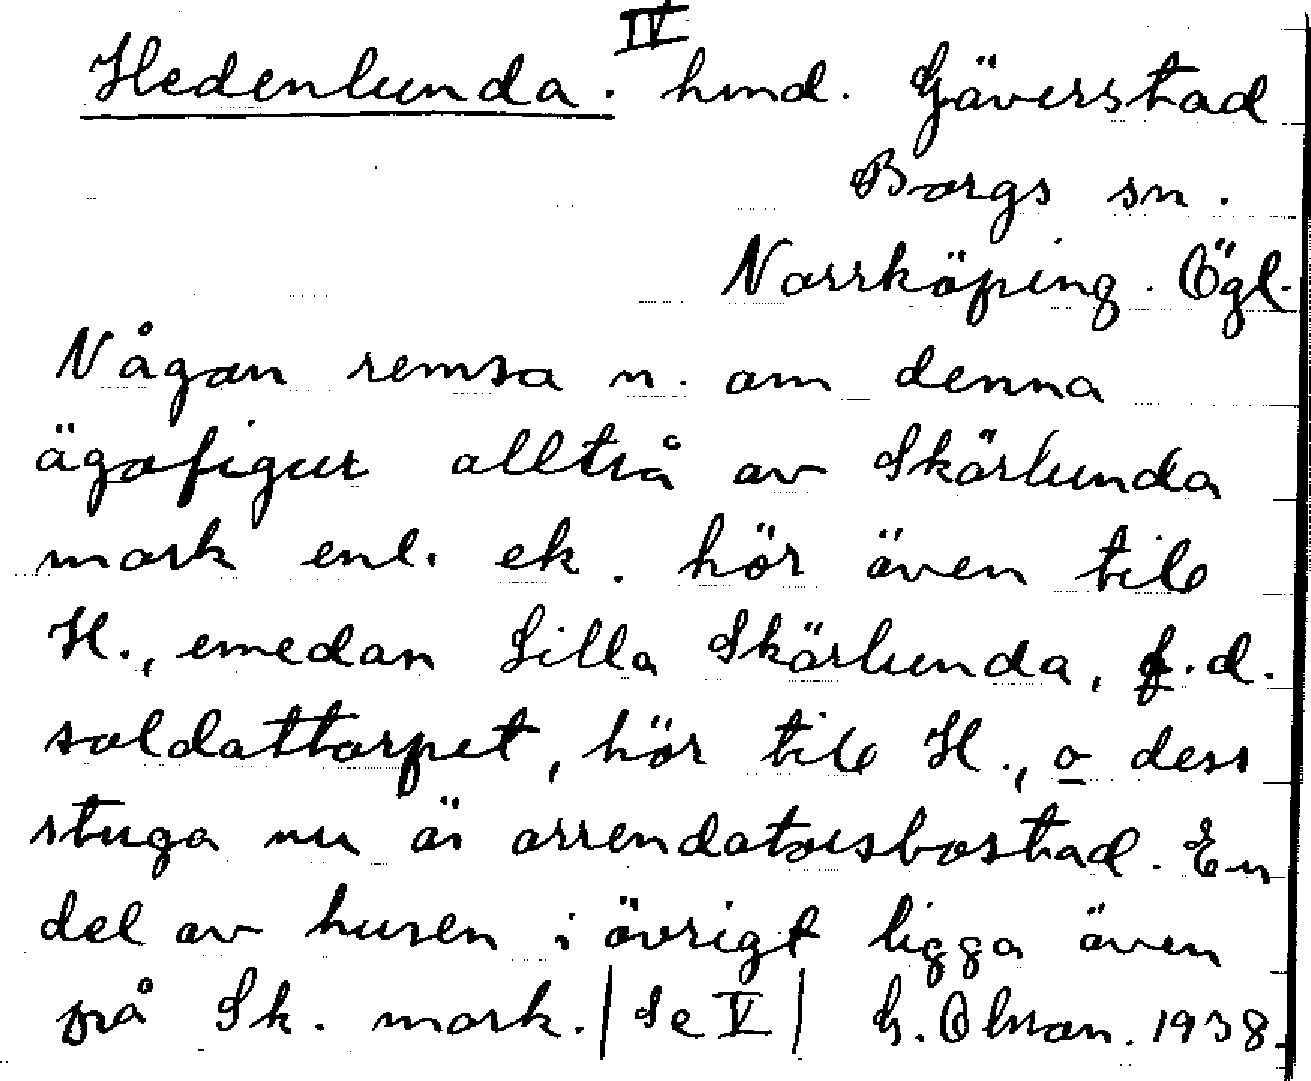 IV
Hedenlunda. hmd. Gäverstad
Borgs sn.
Norrköping. Ögl.
Någon remsa n. om denna
ägofigur alltså av Skärlunda
mark enl. ek. hör även till
H., emedan Lilla Skärlunda, f.d.
soldattorpet, hör till H., o dess
stuga nu är arrendatorsbostad. En
del av husen i övrigt ligga även
på Sk. mark. | Se V | G. Olson. 1938.